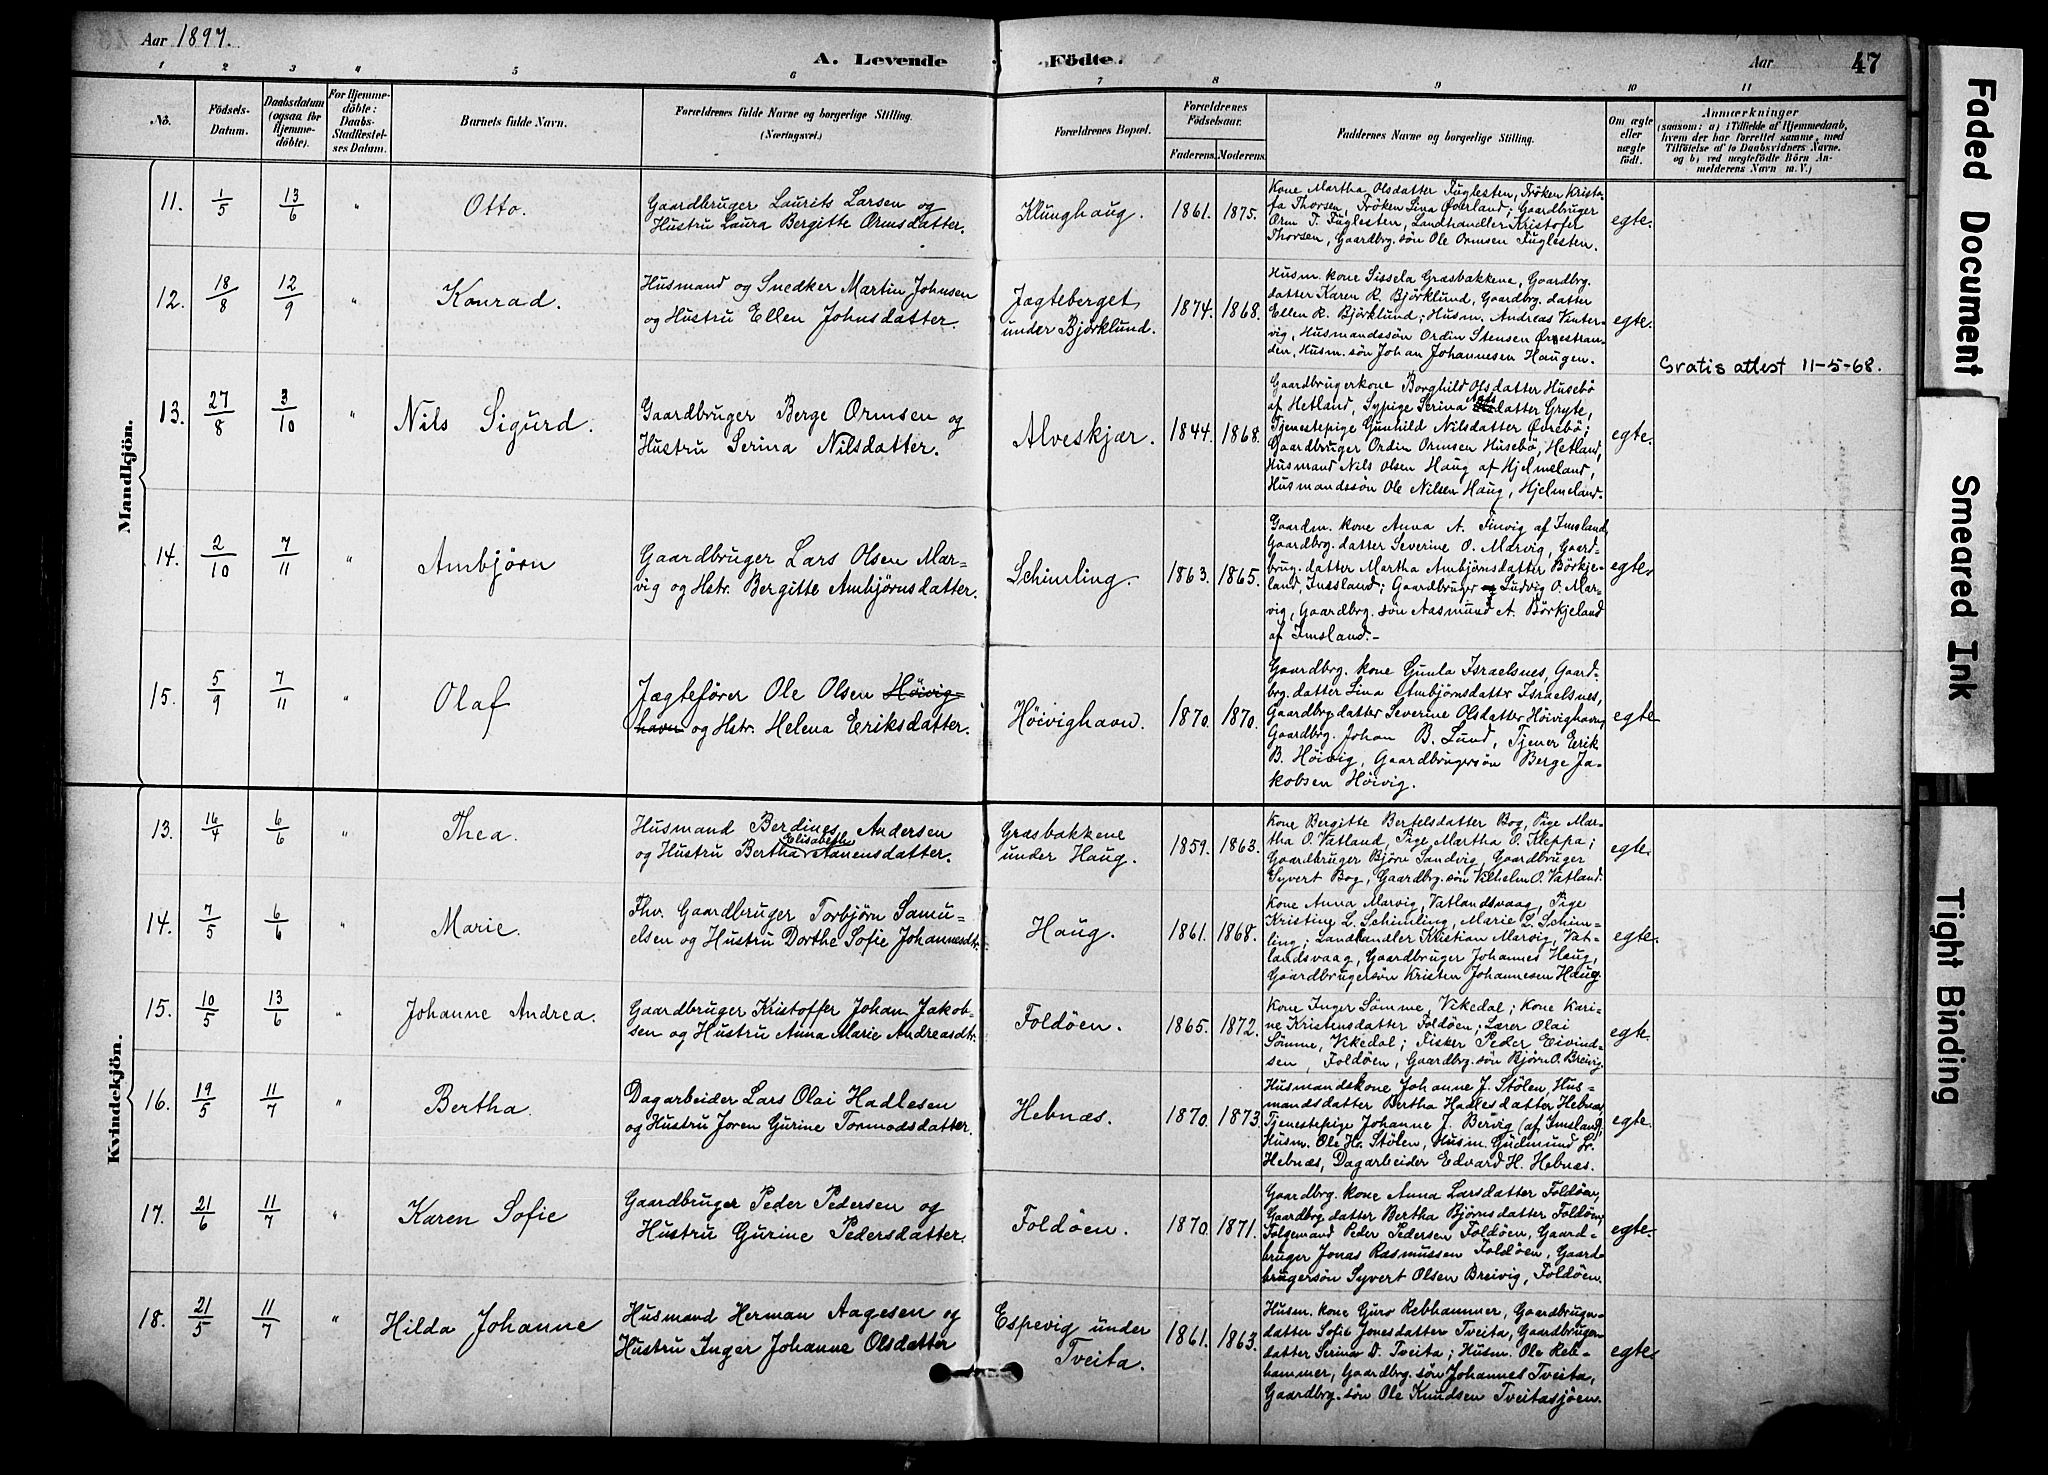 Aar 1897.
A. Levende Fødte.
Aar
47
1 2 3 4 5 6 7 8 9 10 11
No.
Fødsels-
Datum.
Daabsdatum
(ogsaa for
Hjemme-
døbte).
For Hjemme-
døbte:
Daabs-
Stadfæstel-
ses Datum.
Barnets fulde Navn.
Forældrenes fulde Navne og borgerlige Stilling.
(Næringsvei.)
Forældrenes Bopæl.
Forældrenes
Fødselsaar.
Faderens. Moderens.
Faddernes Navne og borgerlige Stilling.
Om ægte
eller
uægte
født.
Anmærkninger
(saasom: a) i Tilfælde af Hjemmedaab,
hvem der har forrettet samme, med
Tilføielse af to Daabsvidners Navne.
og b) ved uægtefødte Børn An-
melderens Navn m. V.)
Mandkjön.
11. 1/5 13/6 " Otto.
Gaardbruger Laurits Larsen og
Hustru Laura Bergitte Ormsdatter.
Klunghaug. 1861. 1875.
Kone Martha Olsdatter Fuglesten, Frøken Krista-
fa Thorsen, Frøken Lina Øverland; Gaardbruger
Orm T. Fuglesten, Landhandler Kristofer
Thorsen, Gaardbrg. søn Ole Ormsen Fuglesten.
egte.
12. 18/8 12/9 " Konrad.
Husmand og Snedker Martin Johnsen
og Hustru Ellen Johnsdatter.
Jægteberget
under Bjørklund.
1874. 1868.
Husm. kone Sissela Græsbakkene, Gaardbrg.
datter Karen R. Bjørklund, Gaardbrg. datter
Ellen R. Bjørklund; Husm. Andreas Vinter-
vig, Husmandssøn Ordin Stensen Ørestran-
den, Husm. søn Johan Johannesen Haugen.
egte.
Gratis attest 11-5-68.
13. 27/8 3/10 " Nils Sigurd.
Gaardbruger Berge Ormsen og
Hustru Serina Nilsdatter.
Alveskjær. 1844. 1868.
Gaardbrugerkone Borghild Olsdatter Husebö
af Hetland, Sypige Serina datter Gryte,
Tjenestepige Gunhild Nilsdatter Øvrebö;
Gaardbruger Ordin Ormsen Husebö, Hetland,
Husmand Nils Olsen Haug af Hjelmeland,
Husmandssön Ole Nilsen Haug, Hjelmeland.
egte.
14. 2/10 7/11 " Ambjørn
Gaardbruger Lars Olsen Mar-
vig og Hstr. Bergitte Ambjørnsdatter.
Schimling. 1863. 1865.
Gaardm. kone Anna A. Finvig af Imsland,
Gaardbrg. datter Severine O. Marvig, Gaard-
brug. datter Martha Ambjørnsdatter Børkje-
land, Imsland; Gaardbruger Ludvig O. Mar-
vig, Gaardbrg. søn Aasmund A. Börkjeland
af Imsland.-
egte.
15. 5/9 7/11 " Olaf
Jægtefører Ole Olsen Höivig-
havn og Hstr. Helena Eriksdatter.
Höivighavn. 1870. 1870.
Gaardbrg. kone Gunla Israelsnes, Gaard-
brg. datter Sina Ambjørnsdatter Israelsnes,
Gaardbrg. datter Severine Olsdatter Höivighavn,
Gaardbrg. Johan B. Lund, Tjener Erik
B. Höivig, Gaardbrugersön Berge Ja-
kobsen Höivig.
egte
Kvindekjön.
13. 16/4 6/6 " Thea.
Husmand Berdines Andersen
Elisabeth
og Hustru Bertha Stanensdatter.
Græsbakkene
under Haug.
1859. 1863.
Kone Bergitte Bertelsdatter Bog, Pige Mar-
tha O. Vatland, Pige Martha O. Kleppa;
Gaardbruger Bjørn Sandvig, Gaardbruger
Syvert Bog, Gaardbrg. søn Vilhelm O. Vatland.
egte.
14. 7/5 6/6 " Marie.
Fhv. Gaardbruger Torbjörn Samu-
elsen og Hustru Dorthe Sofie Johannesdtr.
Haug. 1861. 1868.
Kone Anna Marvig, Vatlandsvaag, Pige
Kristine L. Schimling, Marie L. Schim-
ling; Landhandler Kristian Marvig, Vat-
landsvaag, Gaardbruger Johannes Haug,
Gaardbrugersøn Kristen Johannesen Haug
egte.
15. 10/5 13/6 " Johanne Andrea.
Gaardbruger Kristoffer Johan Jakob-
sen og Hustru Anna Marie Andreasdtr.
Foldøen. 1865. 1872.
Kone Inger Sömme, Vikedal; Kone Kari-
ne Kristensdatter Foldøen; Lærer Olai
Sömme, Vikedal; Fisker Peder Eivind-
sen, Foldøen, Gaardbrg. søn Bjørn O. Breivig.
egte.
16. 19/5 11/7 " Bertha.
Dagarbeider Lars Olai Hadlesen
og Hustru Joren Gurine Tormodsdatter.
Hebnæs. 1870. 1873.
Husmandskone Johanne J. Stölen, Hus-
mandsdatter Bertha Hadlesdatter Hebnæs,
Tjenestepige Johanne J. Bervig (af Imsland),
Husm. Ole Hr. Stölen, Husm. Gudmund Lr.
Hebnæs, Dagarbeider Edvard H. Hebnæs.
egte.
17. 21/6 11/7 " Karen Sofie
Gaardbruger Peder Pedersen og
Hustru Gurine Pedersdatter.
Foldøen. 1870. 1871.
Gaardbrg. kone Anna Larsdatter Foldøen,
Gaardbrg. datter Bertha Bjørnsdatter Foldøen,
Følgemand Peder Pedersen Foldøen, Gaard-
bruger Jonas Rasmussen Foldøen, Gaard-
brugersøn Syvert Olsen Breivig, Foldøen.
egte.
18. 21/5 11/7 " Hilda Johanne
Husmand Herman Aagesen og
Hustru Inger Johanne Olsdatter
Espevig under
Tveita.
1861. 1863.
Husm. kone Guro Rebhammer, Gaardbruger-
datter Sofie Jonesdatter Tveita, Gaardbruger-
datter Serina D. Tveita; Husm. Ole Reb-
hammer, Gaardbrg. søn Johannes Tveita,
Gaardbrg. søn Ole Knudsen Tveitasjöen.
egte.
Faded Document
Smeared Ink
Tight Binding